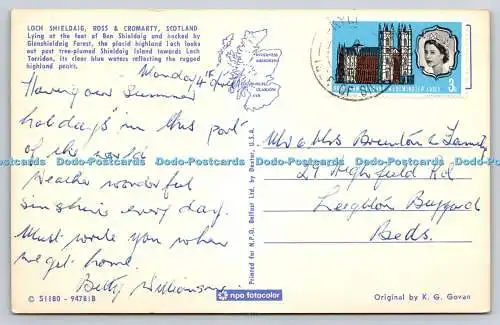 LOCH SHIELDAIG, ROSS & CROMARTY, SCOTLAND
Lying at the foot of Ben Shieldaig and backed by
Glenshieldaig Forest, the placid highland loch looks
out past tree-plumed Shieldaig Island towards Loch
Torridon, its clear blue waters reflecting the rugged
highland peaks.
INVERNESS
ABERDEEN
GLASGOW
AYR
3d
WESTMINSTER ABBEY
Monday 4th
Having our Summer
holidays in this part
of the world
Weather wonderful
sunshine every day.
Must write you when
we get home.
Betty Williamson
Mr & Mrs Brunton & Family
29 Highfield Rd
Leighton Buzzard
Beds.
Printed for N.P.O. Belfour Ltd. by Dexter, U.S.A.
© 51180 - 94781B
npo fotocolor
Original by K. G. Govan
Dodo-Postcards Dodo-Postcards Dodo-Postcards Dodo-Postcards